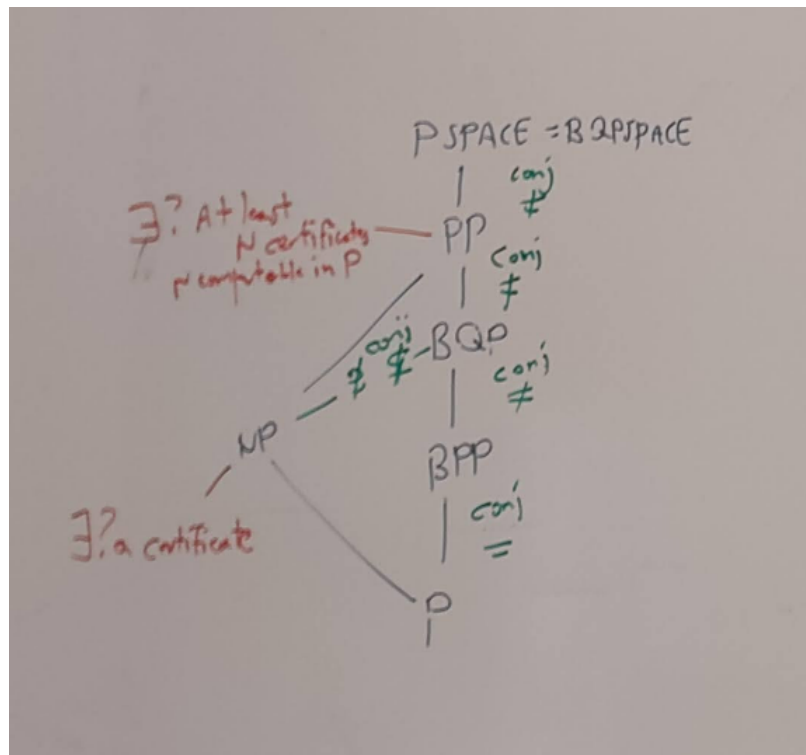 PSPACE = BQPSPACE
conj
≠
∃? At least
N certificates
N computable in P
PP
conj
≠
conj
⊉ ⊈
BQP
conj
≠
NP
BPP
conj
=
∃? a certificate
P